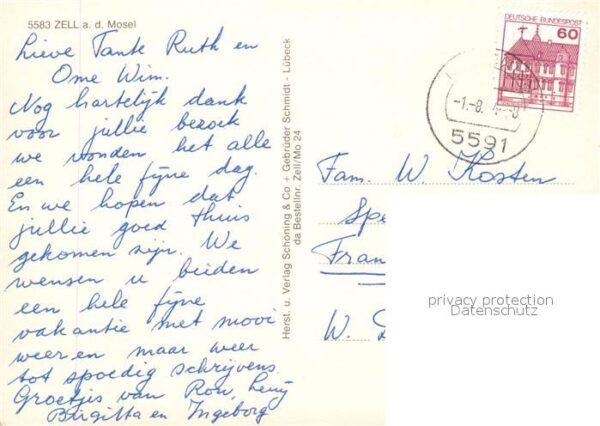 5583 ZELL a. d. Mosel
Lieve Tante Ruth en
Ome Wim.
Nog hartelijk dank
voor jullie bezoek
we vonden het alle
een hele fijne dag.
En we hopen dat
jullie goed thuis
gekomen zijn. We
wensen u beiden
een hele fijne
vakantie met mooi
weer en maar weer
tot spoedig schrijvens
Groetjes van Ron,
Birgitta en Ingeborg
Herst. u. Verlag Schöning & Co + Gebrüder Schmidt - Lübeck
da Bestellnr. Zell/Mo 24
DEUTSCHE BUNDESPOST
60
-1.-8.
5591
Fam. W. Kosten
Spe
Fran
W. D
privacy protection
Datenschutz